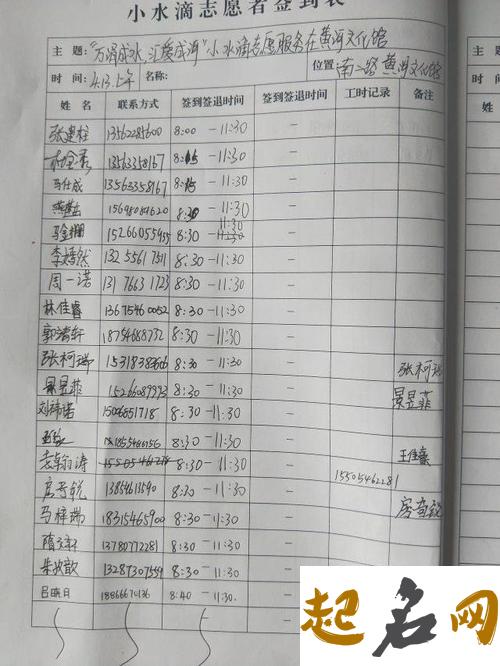 小水滴志愿者签到表
主题："万涓成水,汇爱成河"小水滴志愿服务在黄河文化馆
时间：4.13上午 名称： 位置 南二路黄河文化馆
姓名 联系方式 签到签退时间 签到签退时间 工时记录 备注
张建柱 13562285600 8:00 -11:30 -
13563358167 8:15 -11:30 -
马仕成 13563358167 8:15 -11:30 -
8:30 -11:30 -
15266055455 8:30 -11:30 -
李嫣然 13255617511 8:30 -11:30 -
周一诺 13176631723 8:30 -11:30 -
林佳睿 13675460052 8:30 -11:30 -
郭渚轩 18754688732 8:30 -11:30 -
张柯瑞 15318383666 8:30 -11:30 - 张柯瑞
景昱菲 15266089993 8:30 -11:30 - 景昱菲
刘祎诺 8:30 -11:30 -
8:30 -11:30 - 王佳豪
袁翰涛 8:30 -11:30 - 15505462281
13854613590 8:30 -11:30 -
马梓瑞 18315465900 8:30 -11:30 -
隋文轩 13780772281 8:30 -11:30 -
朱坎歆 13287307559 8:30 -11:30 -
吕映日 8:40 -11:30 -
起名网